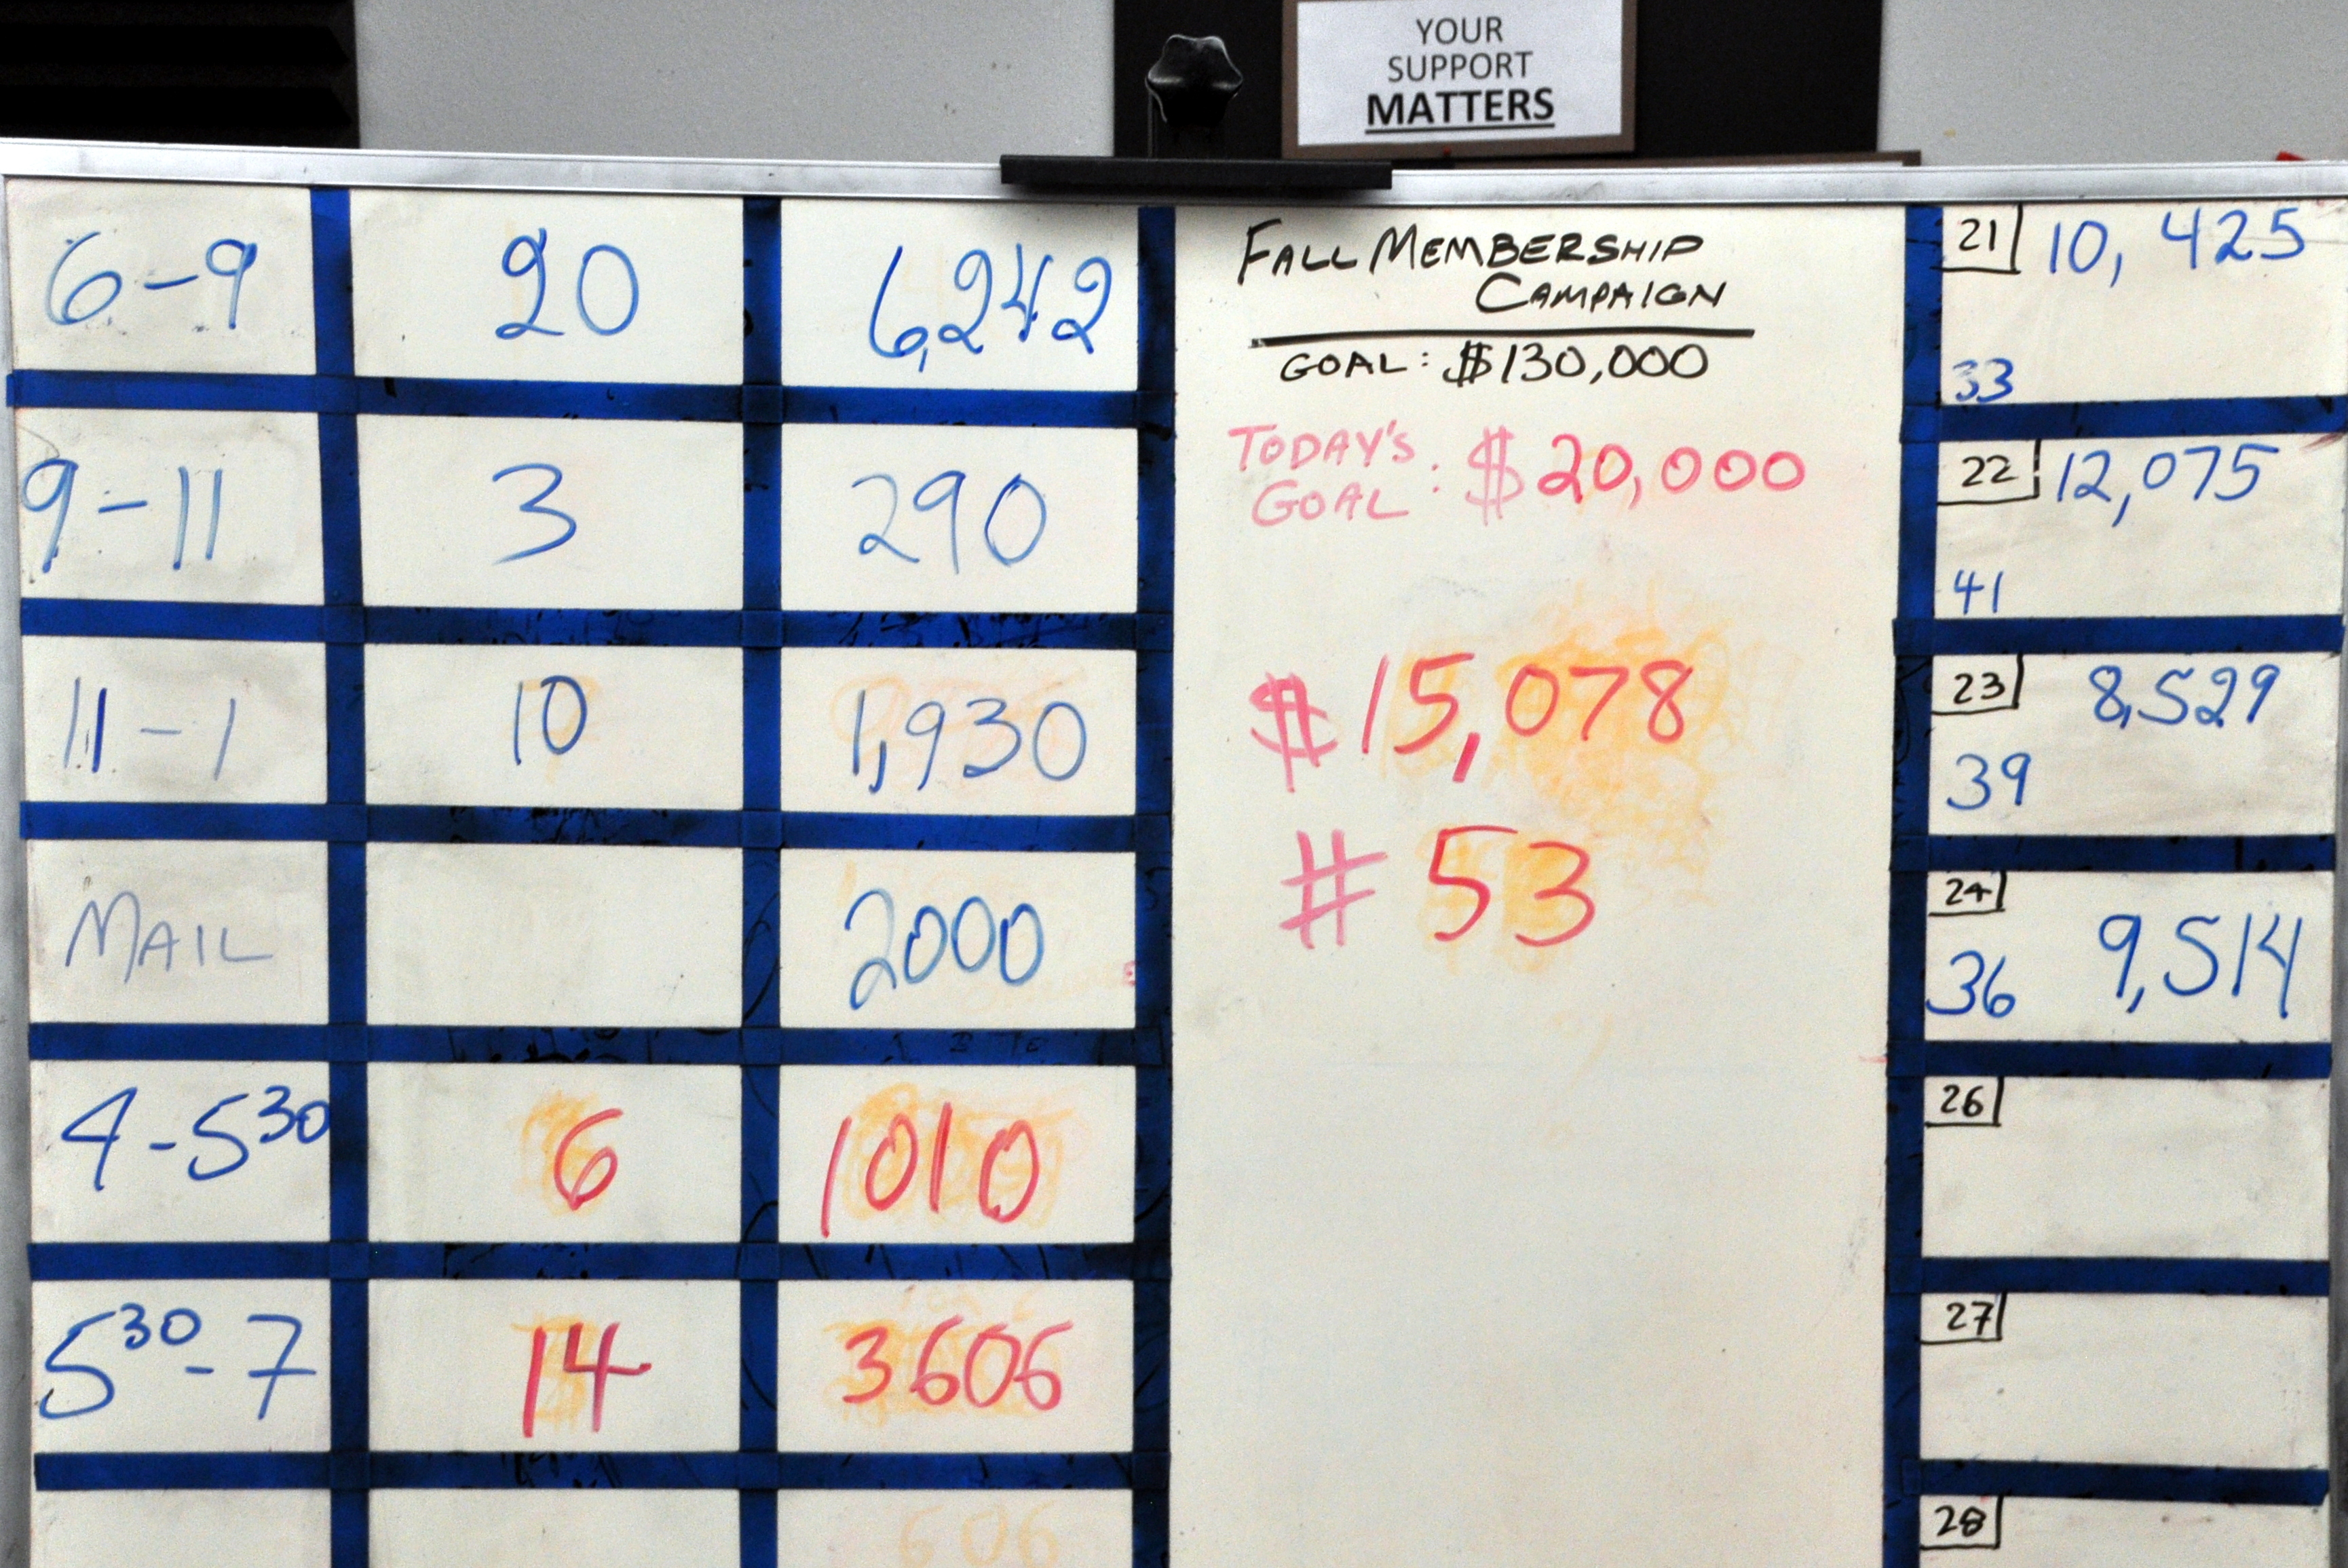 YOUR
SUPPORT
MATTERS
6-9 20 6,242
9-11 3 290
11-1 10 1,930
MAIL 2000
4-5³⁰ 6 1010
5³⁰-7 14 3606
606
FALL MEMBERSHIP
CAMPAIGN
GOAL: $130,000
TODAY'S
GOAL : $20,000
$15,078
# 53
21 10,425
33
22 12,075
41
23 8,529
39
24 9,514
36
26
27
28